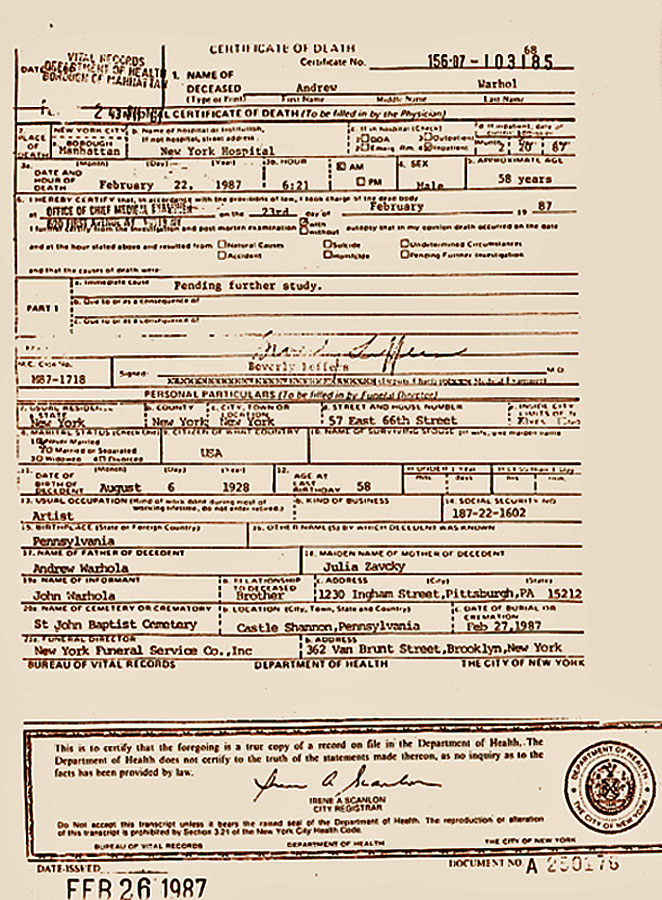 CERTIFICATE OF DEATH
68
Certificate No. 156-87-103185
VITAL RECORDS
DEPARTMENT OF HEALTH
BOROUGH OF MANHATTAN
DATE
1. NAME OF
DECEASED Andrew Warhol
(Type or Print) First Name Middle Name Last Name
CERTIFICATE OF DEATH (To be filled in by the Physician)
PLACE OF DEATH
NEW YORK CITY
a. BOROUGH
Manhattan
b. Name of hospital or institution,
if not hospital, street address
New York Hospital
c. If in hospital (Check)
DOA Outpatient
Emerg. Rm. Inpatient
d. If inpatient, date of
20 87
3a. DATE AND HOUR OF DEATH
(Month) (Day) (Year)
February 22, 1987
3b. HOUR
6:21
AM
PM
4. SEX
Male
5. APPROXIMATE AGE
58 years
6. I HEREBY CERTIFY that, in accordance with the provisions of law, I took charge of the dead body
at OFFICE OF CHIEF MEDICAL EXAMINER on the 23rd day of February 19 87
520 FIRST AVENUE
with
without
autopsy that in my opinion death occurred on the date
and at the hour stated above and resulted from
Natural Causes Suicide Undetermined Circumstances
Accident Homicide Pending Further Investigation
and that the causes of death were:
PART 1
a. Immediate cause Pending further study.
b. Due to or as a consequence of
c. Due to or as a consequence of
M.E. Case No.
M87-1718
Signed:
M.D.
PERSONAL PARTICULARS (To be filled in by Funeral Director)
7. USUAL RESIDENCE
a. STATE
New York
b. COUNTY
New York
c. CITY, TOWN OR LOCATION
New York
d. STREET AND HOUSE NUMBER
57 East 66th Street
e. INSIDE CITY LIMITS
8. MARITAL STATUS (Check One)
Never Married
Married or Separated
Widowed Divorced
9. CITIZEN OF WHAT COUNTRY
USA
10. NAME OF SURVIVING SPOUSE (If wife, give maiden name)
11. DATE OF BIRTH OF DECEDENT
(Month) (Day) (Year)
August 6 1928
12. AGE AT LAST BIRTHDAY 58
UNDER 1 Year
mos. days
LESS than 1 Day
hrs. min.
13. USUAL OCCUPATION (Kind of work done during most of working lifetime, do not enter retired.)
Artist
b. KIND OF BUSINESS
14. SOCIAL SECURITY NO
187-22-1602
15. BIRTHPLACE (State or Foreign Country)
Pennsylvania
16. OTHER NAME(S) BY WHICH DECEDENT WAS KNOWN
17. NAME OF FATHER OF DECEDENT
Andrew Warhola
18. MAIDEN NAME OF MOTHER OF DECEDENT
Julia Zavcky
19a NAME OF INFORMANT
John Warhola
b. RELATIONSHIP TO DECEASED
Brother
c. ADDRESS (City) (State)
1230 Ingham Street,Pittsburgh,PA 15212
20a NAME OF CEMETERY OR CREMATORY
St John Baptist Cemetery
b. LOCATION (City, Town, State and Country)
Castle Shannon,Pennsylvania
c. DATE OF BURIAL OR CREMATION
Feb 27,1987
FUNERAL DIRECTOR
New York Funeral Service Co.,Inc
b. ADDRESS
362 Van Brunt Street,Brooklyn,New York
BUREAU OF VITAL RECORDS DEPARTMENT OF HEALTH THE CITY OF NEW YORK
This is to certify that the foregoing is a true copy of a record on file in the Department of Health. The
Department of Health does not certify to the truth of the statements made thereon, as no inquiry as to the
facts has been provided by law.
IRENE A SCANLON
CITY REGISTRAR
Do not accept this transcript unless it bears the raised seal of the Department of Health. The reproduction or alteration
of this transcript is prohibited by Section 3.21 of the New York City Health Code.
BUREAU OF VITAL RECORDS DEPARTMENT OF HEALTH THE CITY OF NEW YORK
DEPARTMENT OF HEALTH
THE CITY OF NEW YORK
DATE ISSUED
FEB 26 1987
DOCUMENT NO. A 250176